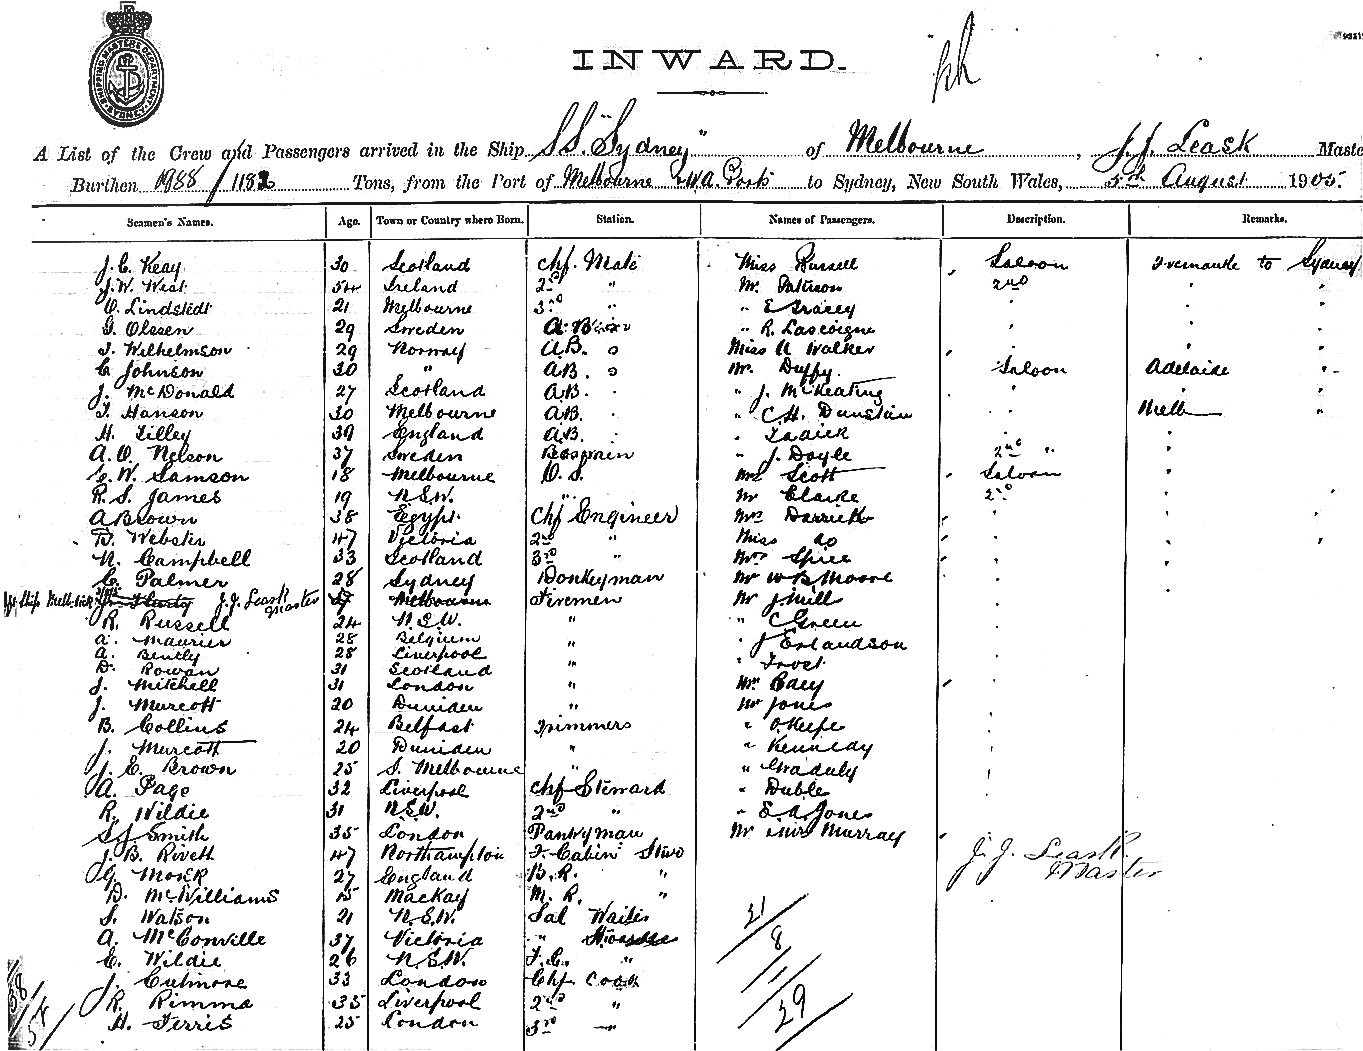 SHIPPING MASTERS DEPARTMENT SYDNEY
INWARD.
A List of the Crew and Passengers arrived in the Ship S.S. "Sydney" of Melbourne, J.J. Leask Maste
Burthen 1988/1182 Tons, from the Port of Melbourne & W.A. Ports to Sydney, New South Wales, 5th August 1905.
Seamen's Names. Age. Town or Country where Born. Station. Names of Passengers. Description. Remarks.
J. C. Keay 30 Scotland Chf. Mate Miss Russell Saloon Fremantle to Sydney
J. W. West 54 Ireland 2nd " Mr. Patterson 2nd " "
O. Lindstedt 21 Melbourne 3rd " " E Gracey " " "
G. Olssen 29 Sweden A.B. " R. Lascoigne " " "
T. Wilhelmson 29 Norway A.B. Miss A Walker " " "
C. Johnson 30 " A.B. Mr. Duffy Saloon Adelaide "
J. McDonald 27 Scotland A.B. " J. McKeating " " "
T. Hanson 30 Melbourne A.B. " C.H. Dunstan " Melb "
H. Tilley 39 England A.B. " "
A. O. Nelson 37 Sweden Bosmain " J. Doyle 2nd " "
C. W. Samson 18 Melbourne O.S. Mrs Scott Saloon "
R. S. James 19 N.S.W. " Mr Clarke 2nd " "
A Brown 38 Egypt Chf Engineer Mrs Darrick " " "
D. Webster 47 Victoria 2nd " Miss do " " "
N. Campbell 33 Scotland 3rd " Mrs Spice " "
C. Palmer 28 Sydney Donkeyman Mr W B Moore " "
J.J. Leask Master Melbourne Firemen Mr J Mill " "
R. Russell 24 N.S.W. " " C Green "
A. Maurier 28 Belgium " J Erlandson "
A. Bently 28 Liverpool "
D. Rowan 31 Scotland " " Frost "
J. Mitchell 31 London " Mrs "
J. Murcott 20 Duniden " Mr Jones "
B. Collins 24 Belfast Trimmers " O'Keefe "
J. Murcott 20 Duniden " " Kennedy "
J. E. Brown 25 S. Melbourne " "
A. Page 32 Liverpool Chf Steward " Duble "
R. Wildie 31 N.S.W. 2nd " " E. A. Jones "
S J Smith 35 London Pantryman Mr Mrs Murray "
J. B. Rivett 47 Northampton F. Cabin Stwd J. J. Leask.
G. Mosek 27 England B.R. " Master
D. McWilliams 15 Mackay M.R. "
S. Watson 21 N.S.W. Sal Waiter 21
A. McConville 37 Victoria " 8
E. Wildie 26 N.S.W. F.C. "
J. Culmore 33 London Chf Cook
R. Rimma 35 Liverpool 2nd " 29
H. Ferris 25 London 3rd "